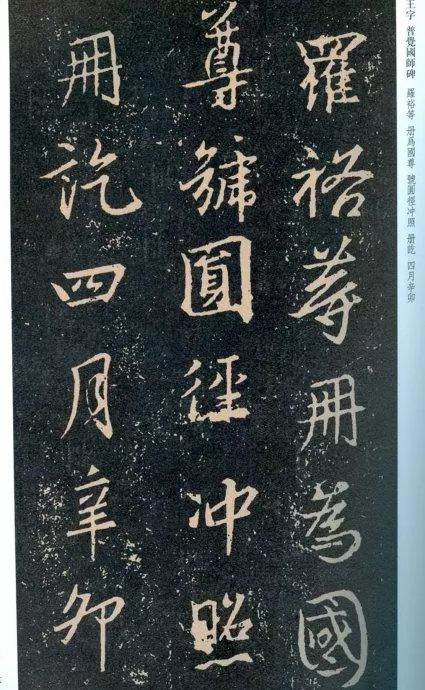 羅裕等冊為國
尊號圓徑冲照
冊訖四月辛卯
王字 普覺國師碑 羅裕等 册爲國尊 號圓徑冲照 册訖 四月辛卯